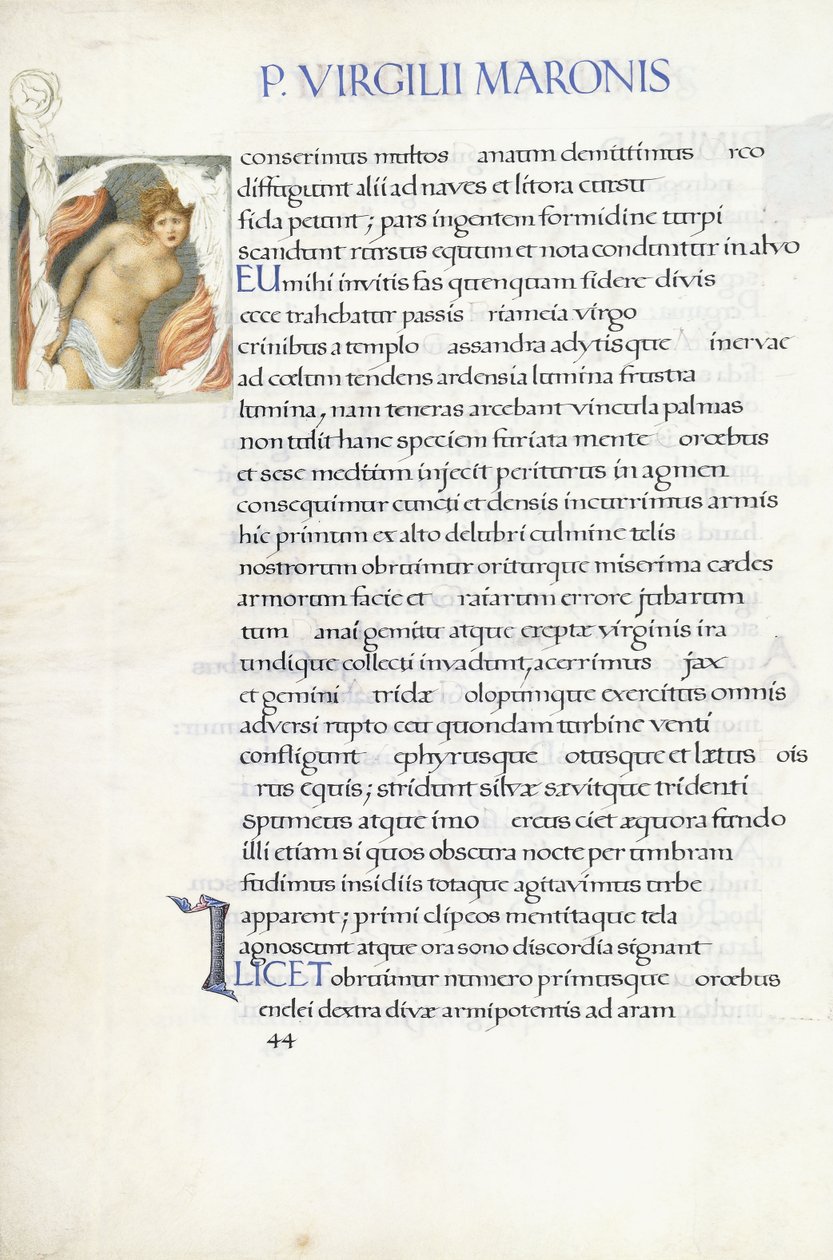 P. VIRGILII MARONIS
conserimus multos anaum demittimus rco
diffugiunt alii ad naves et litora cursu
fida petunt; pars ingentem formidine turpi
scandunt rursus equum et nota conduntur in alvo
HEU mihi invitis fas quenquam fidere divis
ecce trahebatur passis riameia virgo
crinibus a templo assandra adytisque inervae
ad cœlum tendens ardensia lumina frustra
lumina, nam teneras arcebant vincula palmas
non tulit hanc speciem furiata mente orœbus
et sese medium injecit periturus in agmen
consequimur cuncti et densis incurrimus armis
hic primum ex alto delubri culmine telis
nostrorum obruimur oriturque miserima cædes
armorum facie et raiarum errore jubarum
tum anai gemitu atque ereptæ virginis ira
undique collecti invadunt, acerrimus jax
et gemini tridæ olopumque exercitus omnis
adversi rupto ceu quondam turbine venti
confligunt ephyrusque otusque et lætus ois
rus equis; stridunt silvæ sævitque tridenti
spumeus atque imo ereus ciet æquora fundo
illi etiam si quos obscura nocte per umbram
fudimus insidiis totaque agitavimus urbe
apparent; primi clipeos mentitaque tela
agnoscunt atque ora sono discordia signant
ILICET obruimur numero primusque orœbus
enelei dextra divæ armipotentis ad aram
44